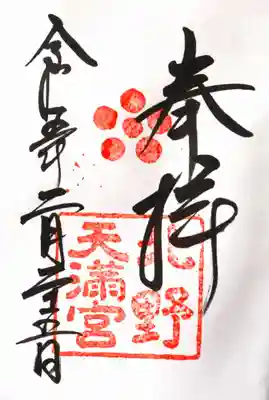 奉拝
北野
天満宮
令和五年二月二十五日